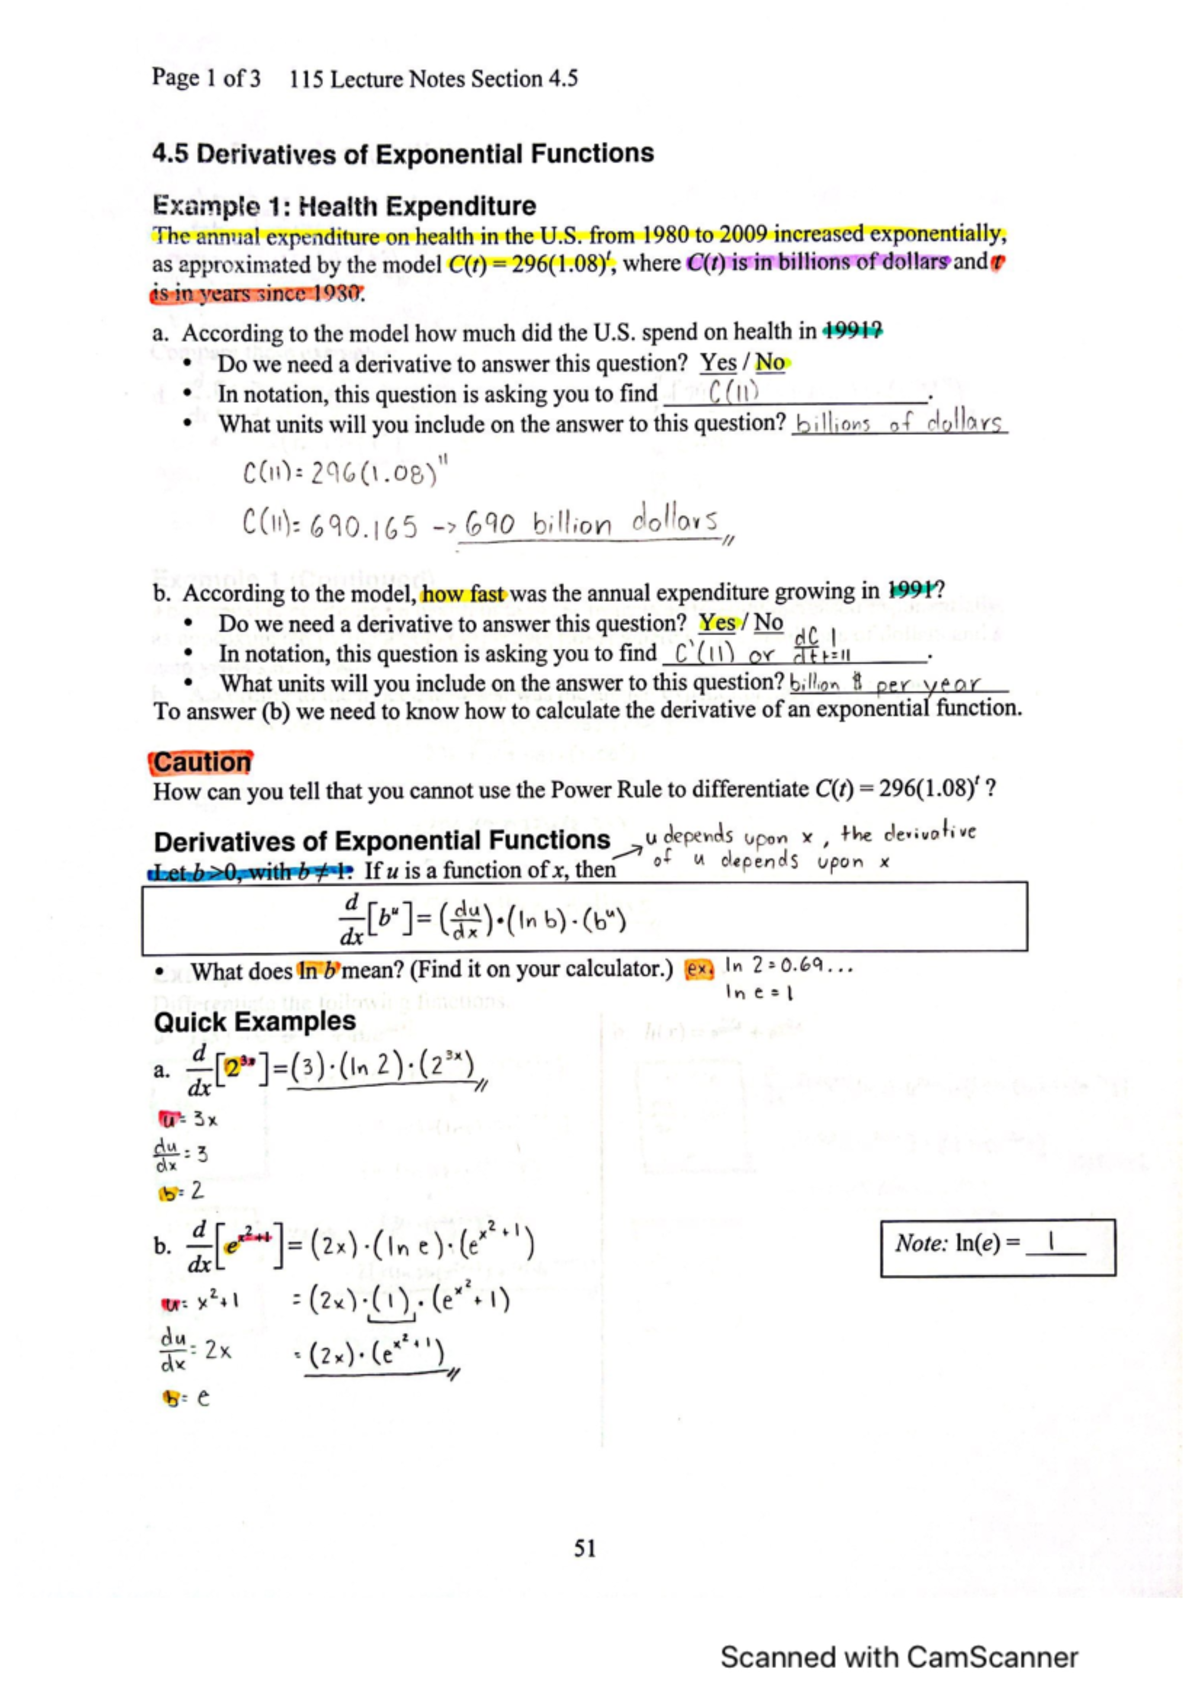 Page 1 of 3 115 Lecture Notes Section 4.5
4.5 Derivatives of Exponential Functions
Example 1: Health Expenditure
The annual expenditure on health in the U.S. from 1980 to 2009 increased exponentially,
as approximated by the model C(t) = 296(1.08)^t, where C(t) is in billions of dollars and t
is in years since 1980.
a. According to the model how much did the U.S. spend on health in 1991?
• Do we need a derivative to answer this question? Yes / No
• In notation, this question is asking you to find C(11).
• What units will you include on the answer to this question? billions of dollars
C(11) = 296(1.08)^11
C(11) = 690.165 -> 690 billion dollars
b. According to the model, how fast was the annual expenditure growing in 1991?
• Do we need a derivative to answer this question? Yes / No
• In notation, this question is asking you to find C'(11) or dC/dt | t=11.
• What units will you include on the answer to this question? billion $ per year
To answer (b) we need to know how to calculate the derivative of an exponential function.
Caution
How can you tell that you cannot use the Power Rule to differentiate C(t) = 296(1.08)^t ?
Derivatives of Exponential Functions → u depends upon x, the derivative
of u depends upon x
Let b>0, with b ≠ 1. If u is a function of x, then
d/dx [b^u] = (du/dx)·(ln b)·(b^u)
• What does ln b mean? (Find it on your calculator.) ex. ln 2 = 0.69...
ln e = 1
Quick Examples
a. d/dx [2^3x] = (3)·(ln 2)·(2^3x)
u = 3x
du/dx = 3
b = 2
b. d/dx [e^x²+1] = (2x)·(ln e)·(e^x²+1)
Note: ln(e) = 1
u = x²+1 = (2x)·(1)·(e^x²+1)
du/dx = 2x = (2x)·(e^x²+1)
b = e
51
Scanned with CamScanner